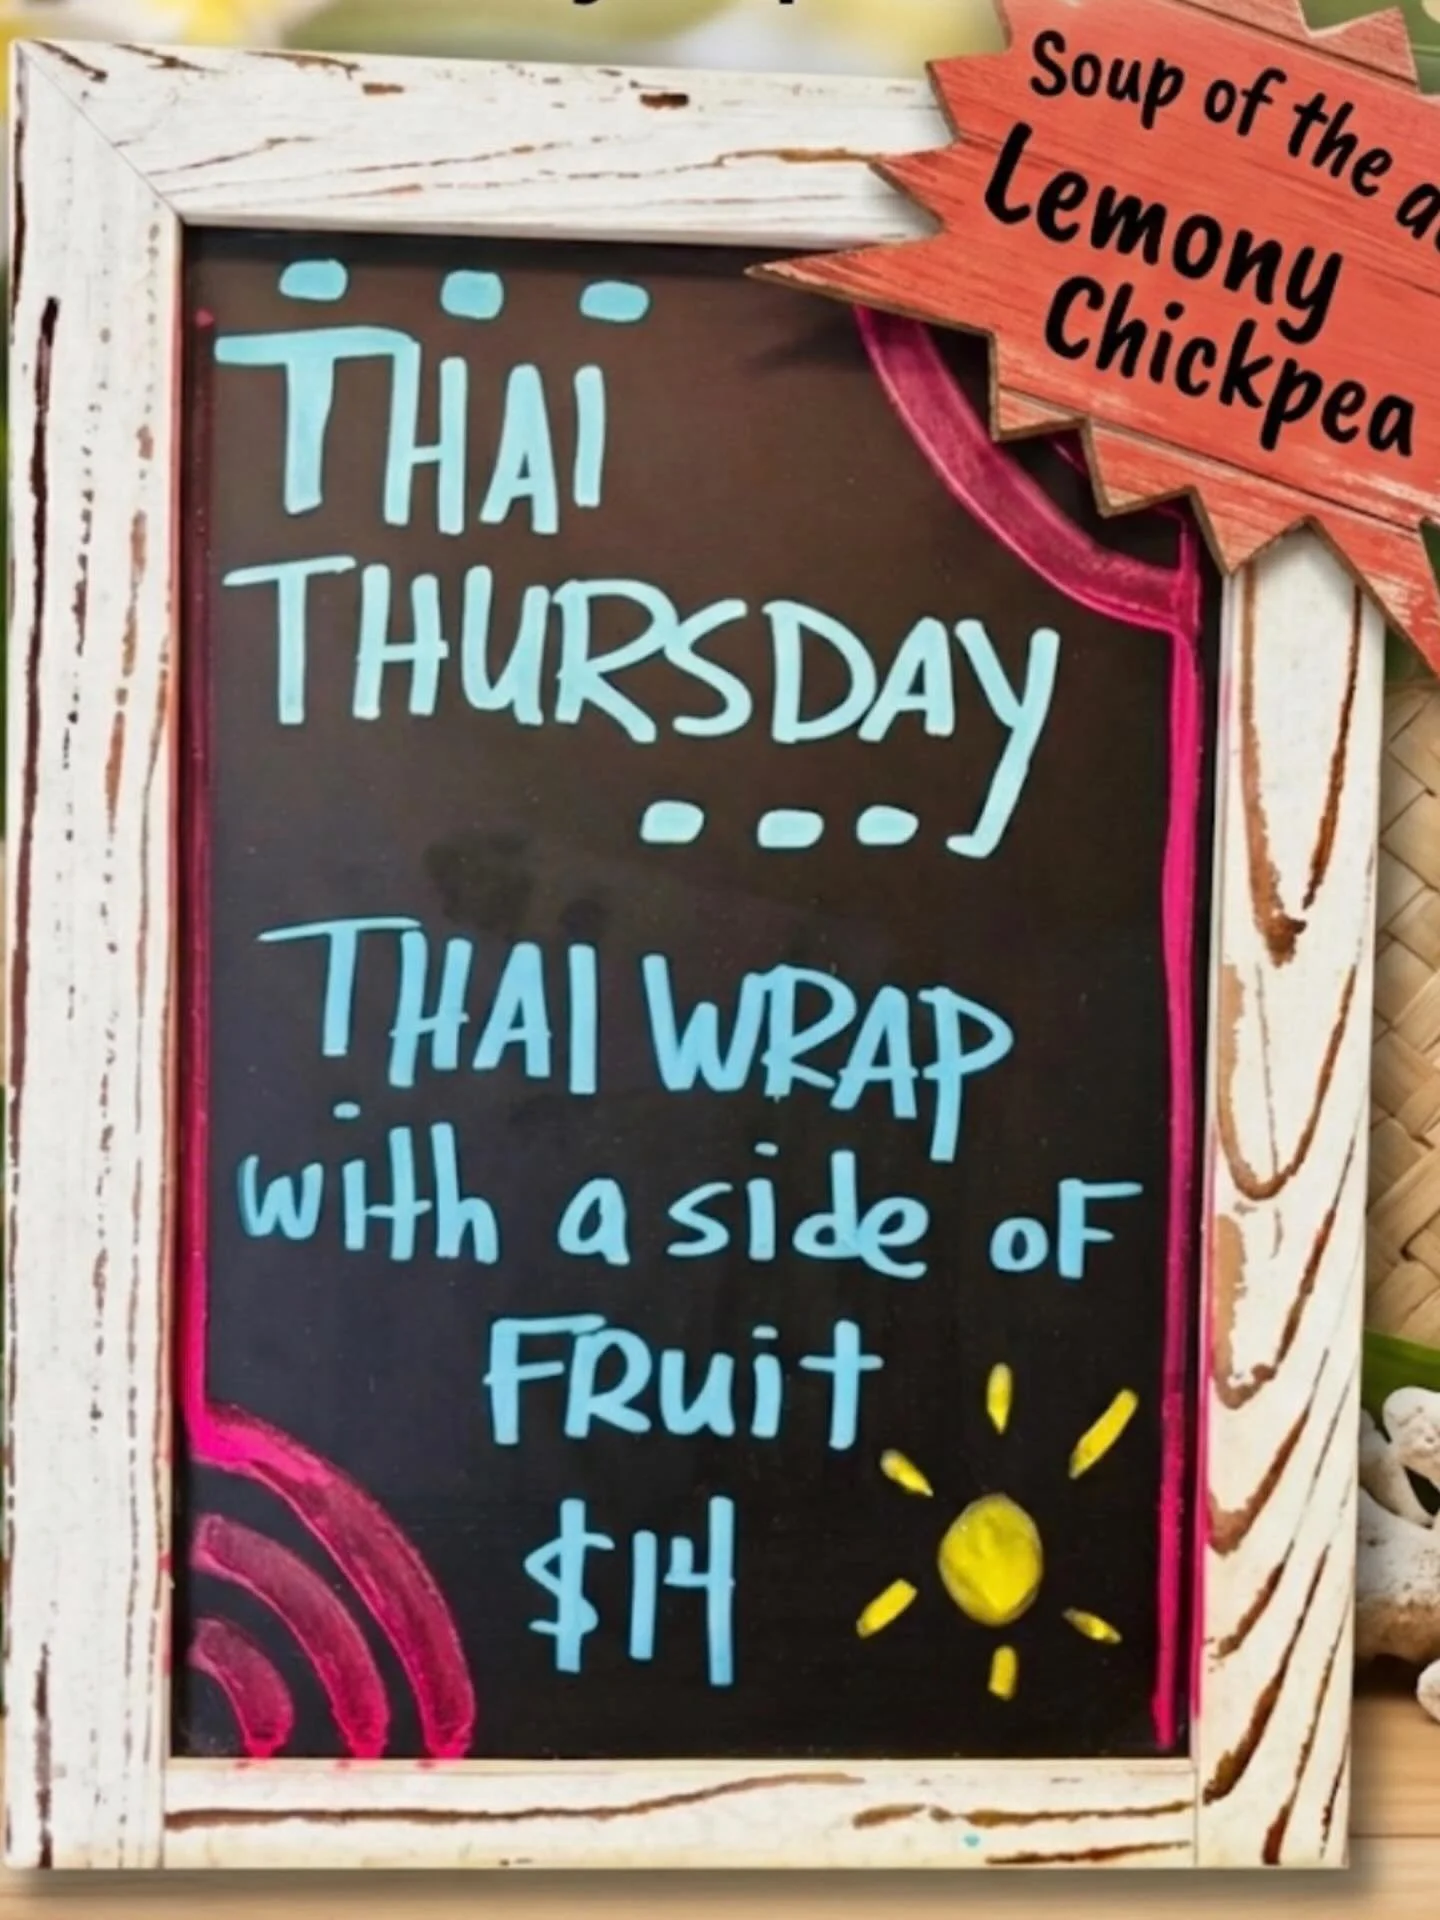 Soup of the
Lemony
Chickpea
THAI
THURSDAY
THAI WRAP
with a side of
FRuit
$14